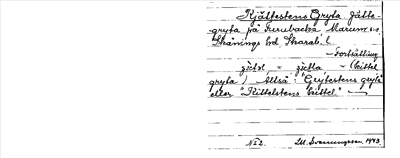 Kjältestens Gryta Jätte-
gryta på Furubacka Marum s:n.
Skånings hd Skarab. l.
Fortsättning
kittel
gryta) Alltså: "Grytestens gryta"
eller "Kittelstens kittel" —
No 2. M. Svanungsson. 1943.